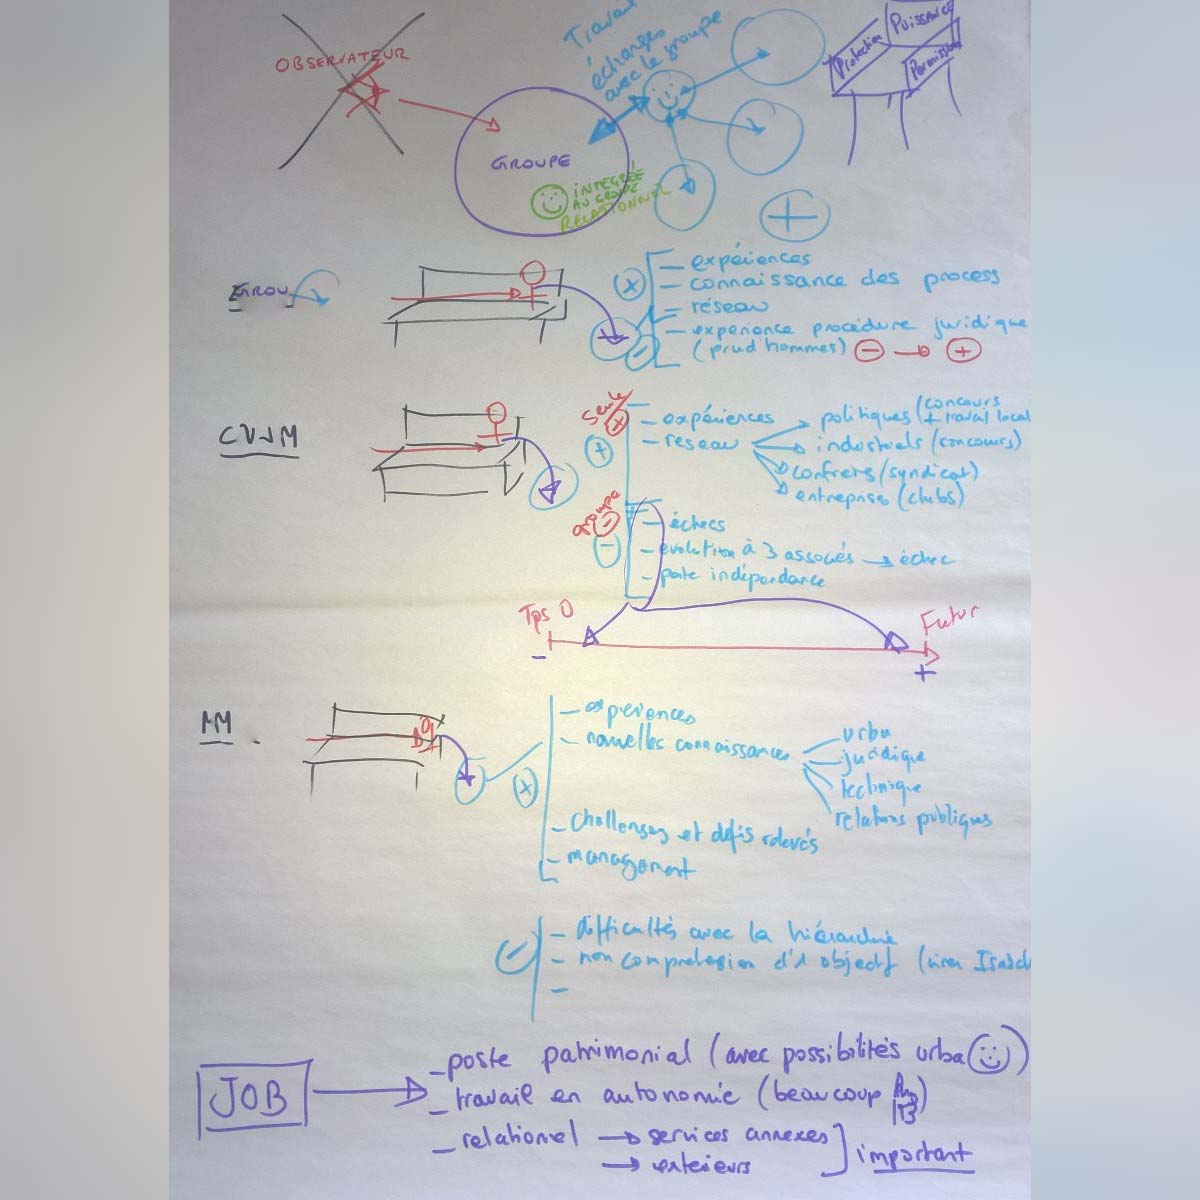 OBSERVATEUR
Travail
échanges
avec le groupe
Protection
Puissance
Permission
GROUPE
INTÉGRÉE
AU GROUPE
RELATIONNEL
GROU
expériences
connaissance des process
réseau
expérience procédure juridique
(prud'hommes) - → +
CVJM
Seule
+
expériences
réseau
politiques (concours
+ travail local
industriels (concours)
confrères (syndicat)
entreprises (clubs)
groupe
-
échecs
évolution à 3 associés → échec
perte indépendance
Tps 0
Futur
-
+
MM
expériences
nouvelles connaissances
urba
juridique
technique
relations publiques
challenges et défis relevés
management
difficultés avec la hiérarchie
non compréhension d'1 objectif
JOB
- poste patrimonial (avec possibilités urba)
- travail en autonomie (beaucoup
- relationel → services annexes
→ extérieurs
important